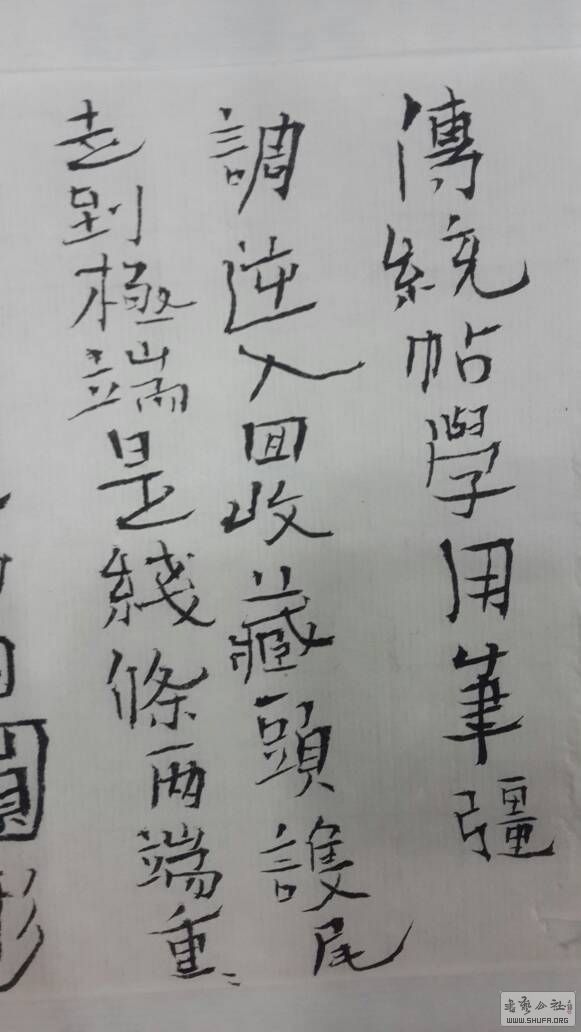 傳統帖學用筆彊
調逆入回收藏頭護尾
走到極端是綫條两端重、
圓
书艺公社
WWW.SHUFA.ORG